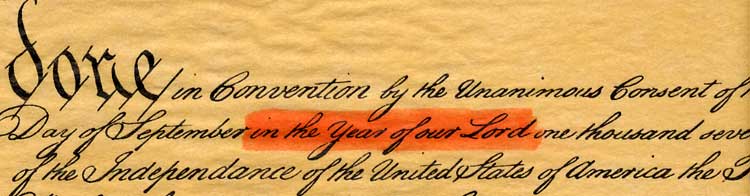 done in Convention by the Unanimous Consent of
Day of September in the Year of our Lord one thousand
of the Independance of the United States of America the